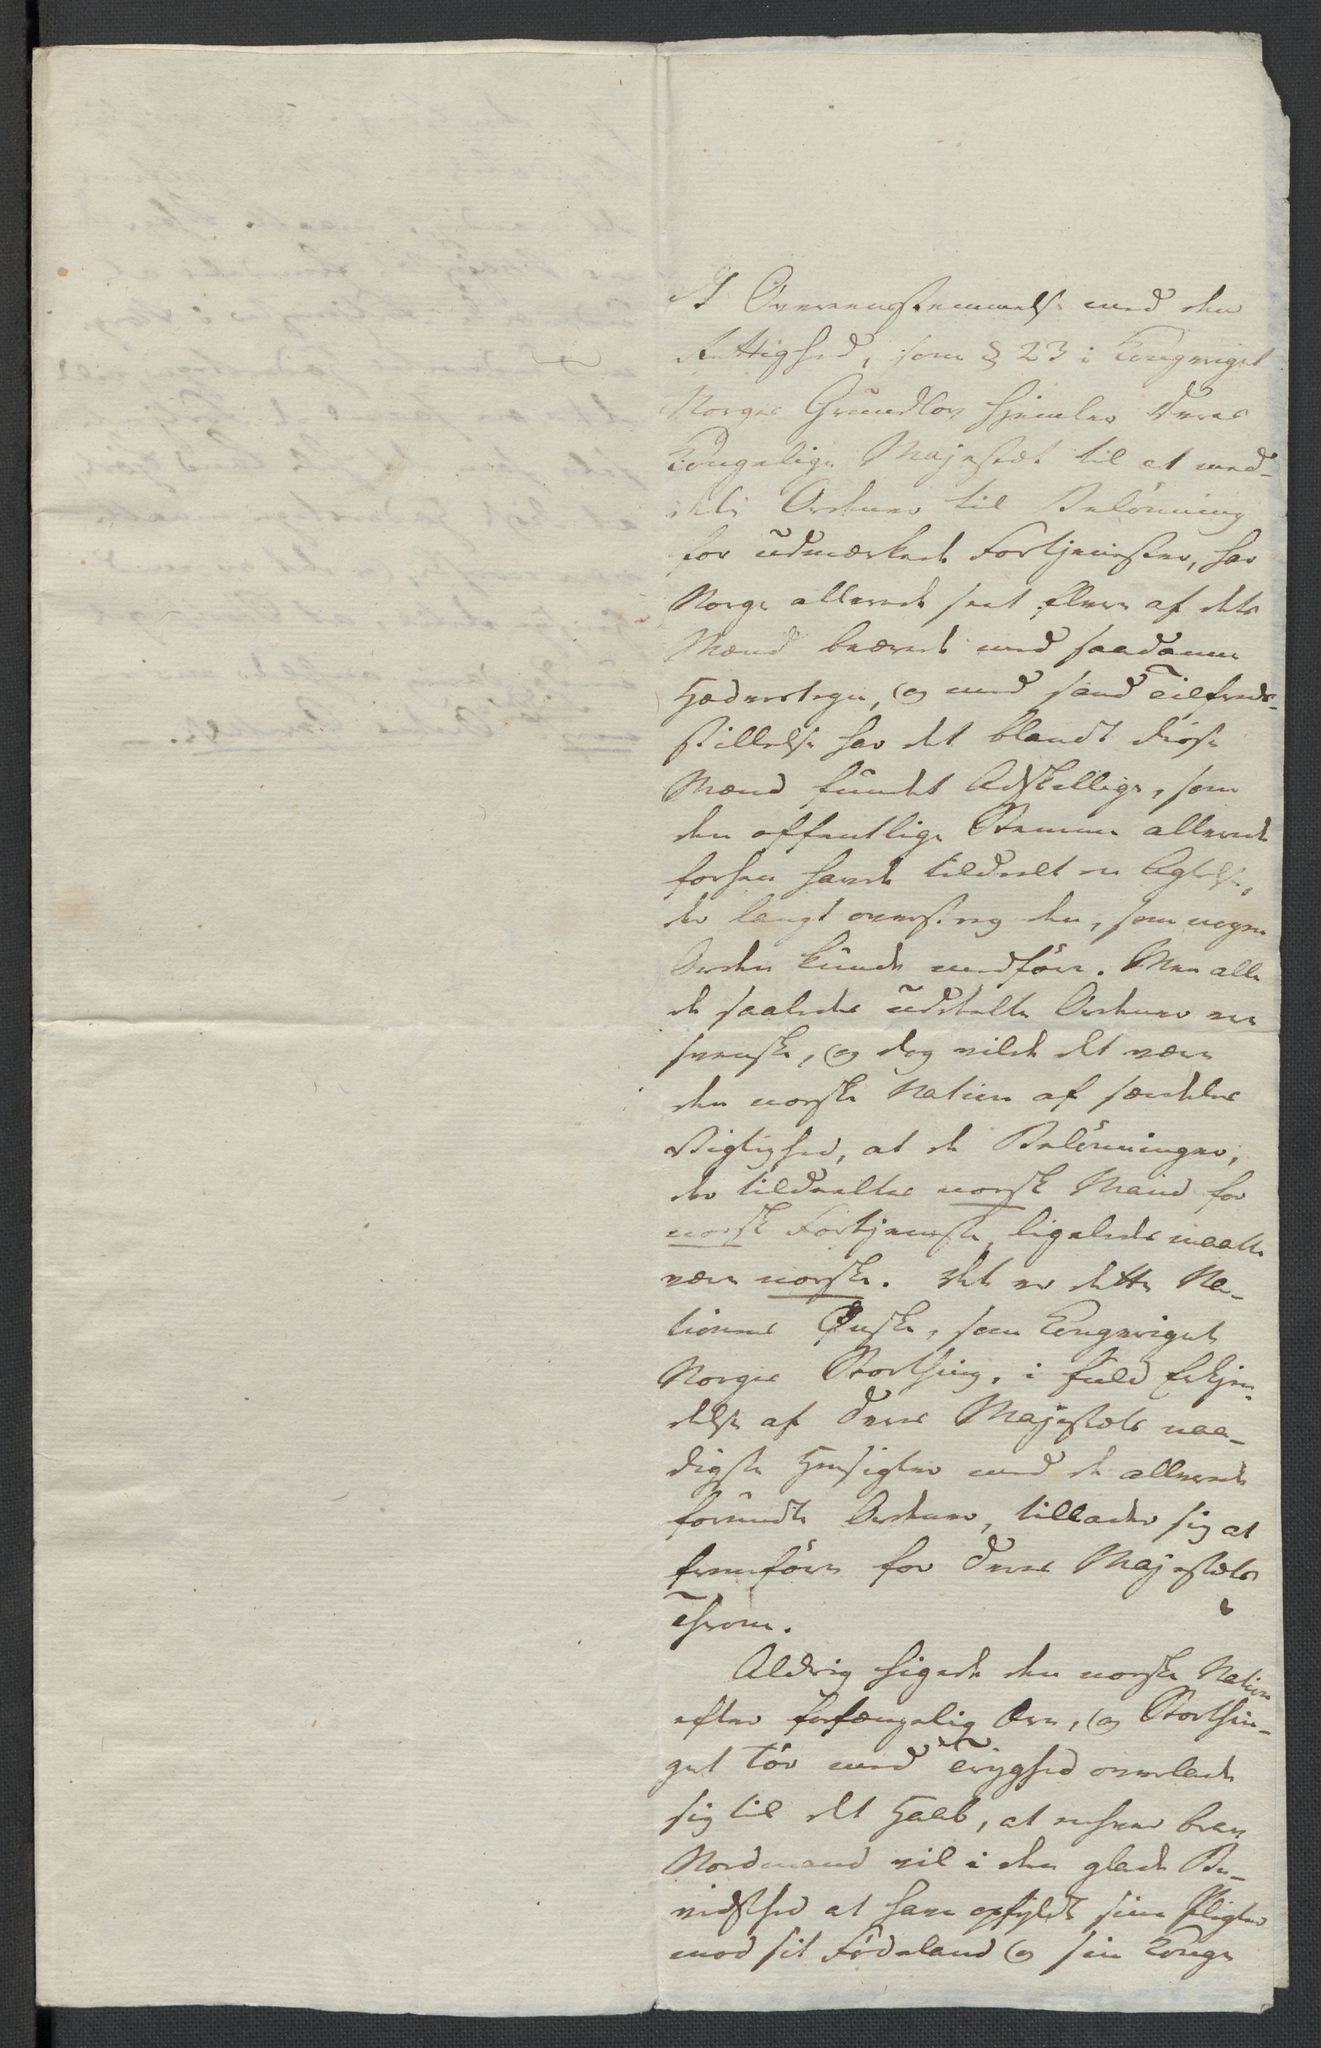 I Overensstemmelse med den
Rettighed, som § 23 i Kongeriget
Norges Grundlov hjemler Deres
Kongelige Majestæt til at med-
dele Ordener til Belönning
for udmærkede Fortjenester, har
Norge allerede seet flere af dets
Mænd beærede med saadanne
Hæderstegn, og med sand Tilfreds-
stillelse har det blandt disse
Mænd fundet Adskellige, som
den offentlige Stemme allerede
forhen havde tildeelt en Agtelse,
der langt oversteg den, som nogen
Orden kunde medföre. Men alle
de saaledes uddeelte Ordener ere
svenske, og dog vilde det være
den norske Nation af særdeles
Vigtighed, at de Belönninger,
der tildeeltes norsk Mand for
norsk Fortjeneste, ligeledes maatte
være norske. Det er dette Na-
tionens Ønske, som Kongeriget
Norges Storthing, i fuld Erkjen-
delse af Deres Majestæts naa-
digste Hensigter med de allerede
forundte Ordener, tillader sig at
fremföre for Deres Majestæts
Throne.
Aldrig higede den norske Nation
efter forfængelig Ære, og Storthin-
get tör med Tryghed overlade
sig til det Haab, at enhver brav
Nordmand vil i den glade Be-
vidsthed at have opfyldt sine Pligter
mod sit Födeland og sin Konge